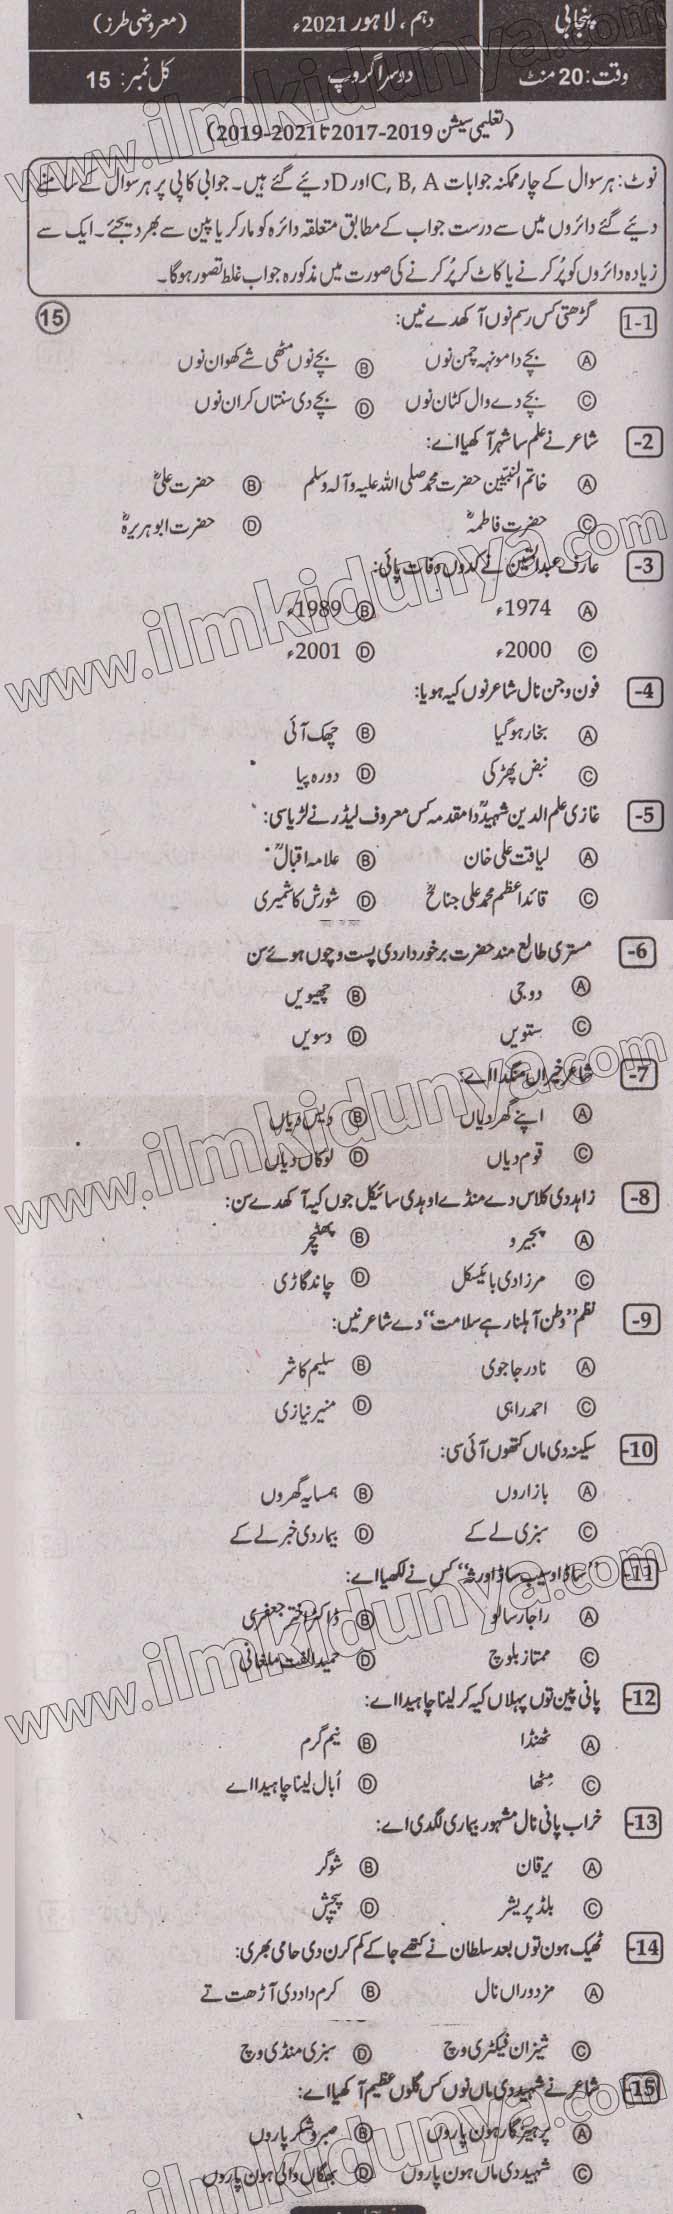 پنجابی
دہم، لاہور 2021ء
(معروضی طرز)
وقت: 20 منٹ
دوسرا گروپ
کل نمبر: 15
(تعلیمی سیشن 2019-2017 تا 2021-2019)
نوٹ: ہر سوال کے چار ممکنہ جوابات C, B, A اور D دیے گئے ہیں۔ جوابی کاپی پر ہر سوال کے سامنے
دیے گئے دائروں میں سے درست جواب کے مطابق متعلقہ دائرہ کو مارکر یا پین سے بھر دیجئے۔ ایک سے
زیادہ دائروں کو پُر کرنے یا کاٹ کر پُر کرنے کی صورت میں مذکورہ جواب غلط تصور ہوگا۔
1-1 گڑھتی کس رسم نوں آکھدے نیں: (15)
(A) بچے دا مونہہ چمن نوں (B) بچے نوں مٹھی شے کھوان نوں
(C) بچے دے وال کٹان نوں (D) بچے دی سنتاں کران نوں
-2 شاعر نے علم سا شہر آکھیا اے:
(A) خاتم النبیین حضرت محمد صلی اللہ علیہ وآلہ وسلم (B) حضرت علیؓ
(C) حضرت فاطمہؓ (D) حضرت ابو ہریرہؓ
-3 عارف عبدالمتین نے کدوں وفات پائی:
(A) 1974ء (B) 1989ء
(C) 2000ء (D) 2001ء
-4 فون وجن نال شاعر نوں کیہ ہویا:
(A) بخار ہوگیا (B) چھک آئی
(C) نبض پھڑکی (D) دورہ پیا
-5 غازی علم الدین شہیدؒ دا مقدمہ کس معروف لیڈر نے لڑیا سی:
(A) لیاقت علی خان (B) علامہ اقبالؒ
(C) قائداعظم محمد علی جناحؒ (D) شورش کاشمیری
-6 مستری طالع مند حضرت برخوردار دی پست وچوں ہوئے سن
(A) دوجی (B) چھیویں
(C) ستویں (D) دسویں
-7 شاعر خیراں منگدا اے:
(A) اپنے گھر دیاں (B) دیس دیاں
(C) قوم دیاں (D) لوکاں دیاں
-8 زاہد دی کلاس دے منڈے اوہدی سائیکل جوں کیہ آکھدے سن:
(A) پجیرو (B) پھٹپھٹر
(C) مرزا دی بائیسکل (D) چاند گاڑی
-9 نظم ”وطن آہلنا رہے سلامت“ دے شاعر نیں:
(A) نادر جاجوی (B) سلیم کاشر
(C) احمد راہی (D) منیر نیازی
-10 سکینہ دی ماں کتھوں آئی سی:
(A) بازاروں (B) ہمسایہ گھروں
(C) سبزی لے کے (D) بیمار دی خبر لے کے
-11 ”ساڈا وسیب ساڈا ورثہ“ کس نے لکھیا اے:
(A) راجا رسالو (B) ڈاکٹر اختر جعفری
(C) ممتاز بلوچ (D) حمید الفت ملغانی
-12 پانی پین توں پہلاں کیہ کر لینا چاہیدا اے:
(A) ٹھنڈا (B) نیم گرم
(C) مِٹھا (D) اُبال لینا چاہیدا اے
-13 خراب پانی نال مشہور بیماری لگدی اے:
(A) یرقان (B) شوگر
(C) بلڈ پریشر (D) پیچش
-14 ٹھیک ہون توں بعد سلطان نے کتھے جا کے کم کرن دی حامی بھری:
(A) مزدوراں نال (B) کرم داد دی آڑھت تے
(C) شیزان فیکٹری وچ (D) سبزی منڈی وچ
-15 شاعر نے شہید دی ماں نوں کس گلوں عظیم آکھیا اے:
(A) پرہیزگار ہون پاروں (B) صبر و شکر پاروں
(C) شہید دی ماں ہون پاروں (D) بھگاں والی ہون پاروں
www.ilmkidunya.com
www.ilmkidunya.com
www.ilmkidunya.com
www.ilmkidunya.com
www.ilmkidunya.com